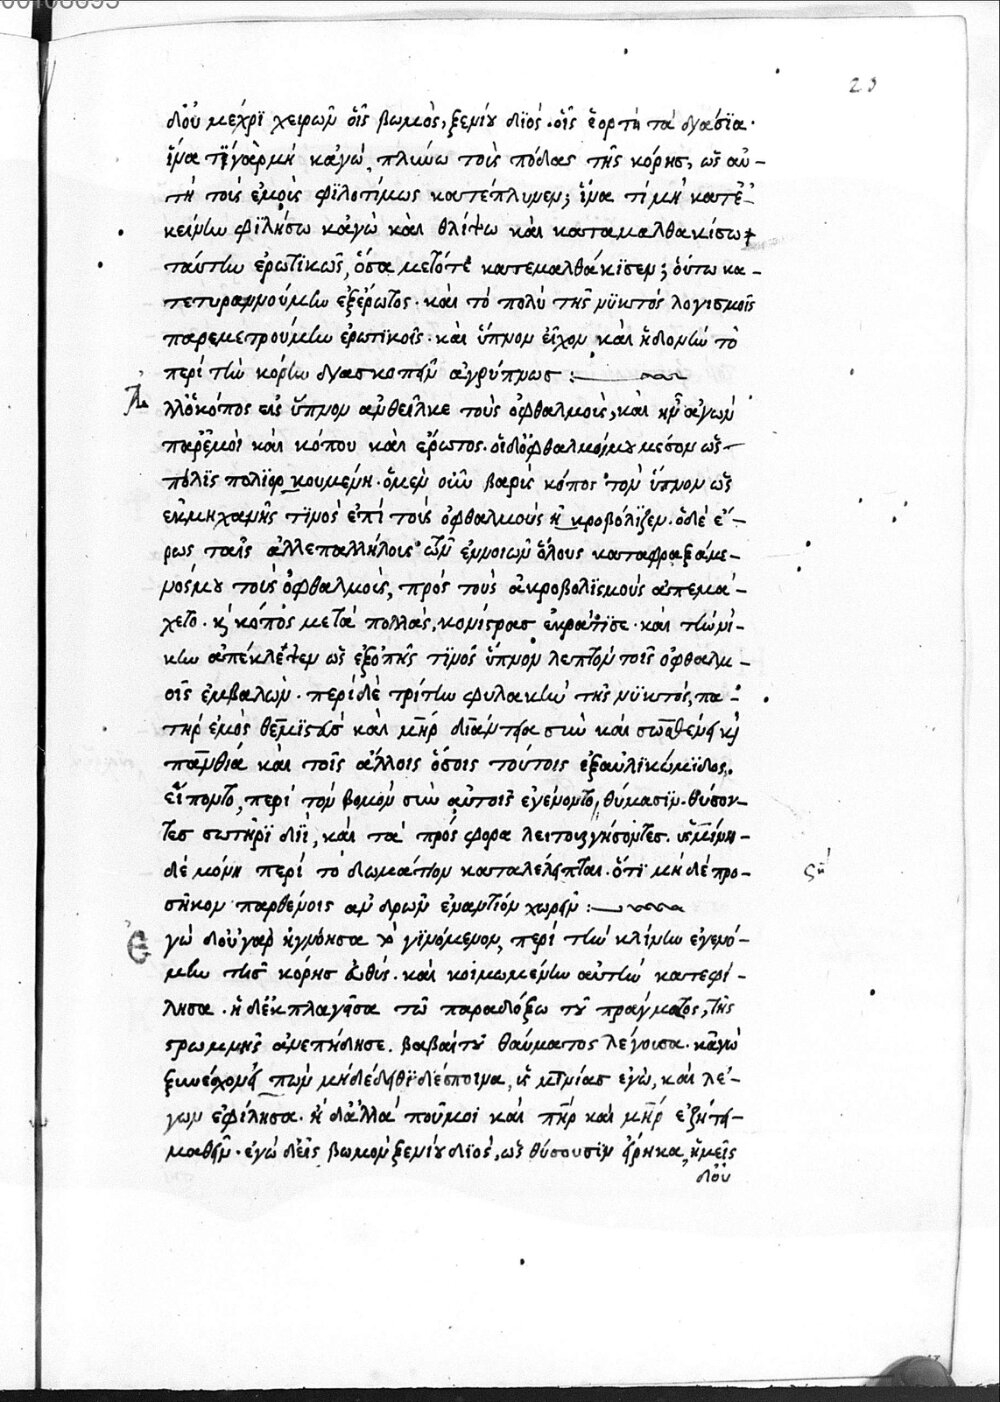 23
δ' οὐ μέχρι χειρῶν οἷς βωμὸς ξενίου διός. οἷς ἑορτὴ τὰ διάσια.
ἵνα τί γὰρ μὴ κἀγὼ πλύνω τοὺς πόδας τῆς κόρης, ὡς αὐ-
τὴ τοὺς ἐμοὺς φιλοτίμως κατέπλυνεν; ἵνα τί μὴ κατε-
κείνην φιλήσω κἀγὼ καὶ θλίψω καὶ καταμαλθακίσω
ταύτην ἐρωτικῶς, ὅσα με τότε κατεμαλθάκισεν; οὕτω κα-
τετυραννούμην ἐξ ἔρωτος. καὶ τὸ πολὺ τῆς νυκτὸς λογισμοῖς
παρεμετρούμην ἐρωτικοῖς. καὶ ὕπνον εἶχον καὶ ἡδονὴν τὸ
περὶ τὴν κόρην διασκοπεῖν ἀγρύπνως :
Ἀλλ' ὁ κόπος εἰς ὕπνον ἀνθεῖλκε τοὺς ὀφθαλμούς, καὶ ἦν ἀγὼν
παρ' ἐμοὶ καὶ κόπου καὶ ἔρωτος. οἱ δ' ὀφθαλμοί μου μέσον ὡς
πόλις πολιορκουμένη. ὁ μὲν οὖν βαρὺς κόπος τὸν ὕπνον ὡς
ἐκ μηχανῆς τινὸς ἐπὶ τοὺς ὀφθαλμοὺς ἠκροβόλιζεν. ὁ δὲ ἔ-
ρως ταῖς ἀλλεπαλλήλοις τῶν ἐννοιῶν ὅλους καταφραξάμε-
νός μου τοὺς ὀφθαλμούς, πρὸς τοὺς ἀκροβολισμοὺς ἀπεμά-
χετο. κόπος μετὰ πολλὰς μοίρας ἐκράτησε. καὶ τὴν νί-
κην ἀπέκλεψεν ὡς ἐξ ὀπῆς τινὸς ὕπνον λεπτὸν τοῖς ὀφθαλμ-
οῖς ἐμβαλών. περὶ δὲ τρίτην φυλακὴν τῆς νυκτός, πα-
τὴρ ἐμὸς θεμιστεὺς καὶ μὴρ διάντεια σὺν καὶ σωσθένει καὶ
πανθίᾳ καὶ τοῖς ἄλλοις ὅσοις τούτοις ἐξ αὐλικώμιδος
εἵποντο, περὶ τὸν βωμὸν σὺν αὐτοῖς ἐγένοντο, θύμασιν θύσον-
τες σωτῆρι διί, καὶ τὰ πρόσφορα λειτουργήσοντες. ὑσμίνη
δὲ μόνη περὶ τὸ δωμάτιον καταλέλειπται. ὅτι μὴ δὲ προ-
σῆκον παρθένοις ἀνδρῶν ἐναντίον χωρεῖν :
Ἐγὼ δ' οὐ γὰρ ἠγνόησα τὸ γινόμενον, περὶ τὴν κλίνην ἐγενό-
μην τῆς κόρης εὐθύς. καὶ κοιμωμένην αὐτὴν κατεφί-
λησα. ἡ δ' ἐκπλαγεῖσα τῷ παραδόξῳ τοῦ πράγματος, τῆς
στρωμνῆς ἀνεπήδησε. βαβαὶ τοῦ θαύματος λέγουσα. κἀγὼ
ξυνεχόμην πῶς μὴ δέδιθι δέσποινα, ὑσμινίας ἐγώ, καὶ λέ-
γων ἐφίλησα. ἡ δ' ἀλλὰ ποῦ μοι καὶ πὴρ καὶ μὴρ ἐζήτει
μαθεῖν. ἐγὼ δ' εἰς βωμὸν ξενίου διός, ὡς θύσουσιν εἴρηκα, ἡμεῖς
δ' οὐ